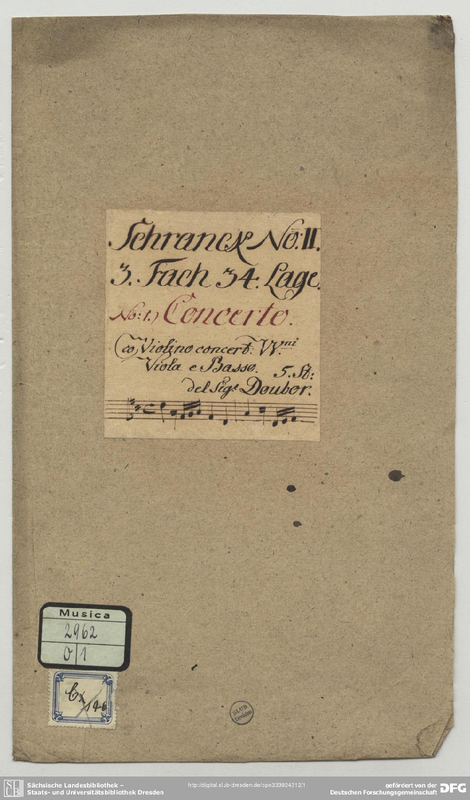 Schranck No: II.
3. Fach 34. Lage.
No: 1.) Concerto.
co Violino concert. VV.ni
Viola e Basso. 5. St:
del Sigr. Douber.
Musica
2962
O 1
Cx
146
SLUB
Dresden
Sächsische Landesbibliothek –
Staats- und Universitätsbibliothek Dresden
gefördert von der
Deutschen Forschungsgemeinschaft
DFG